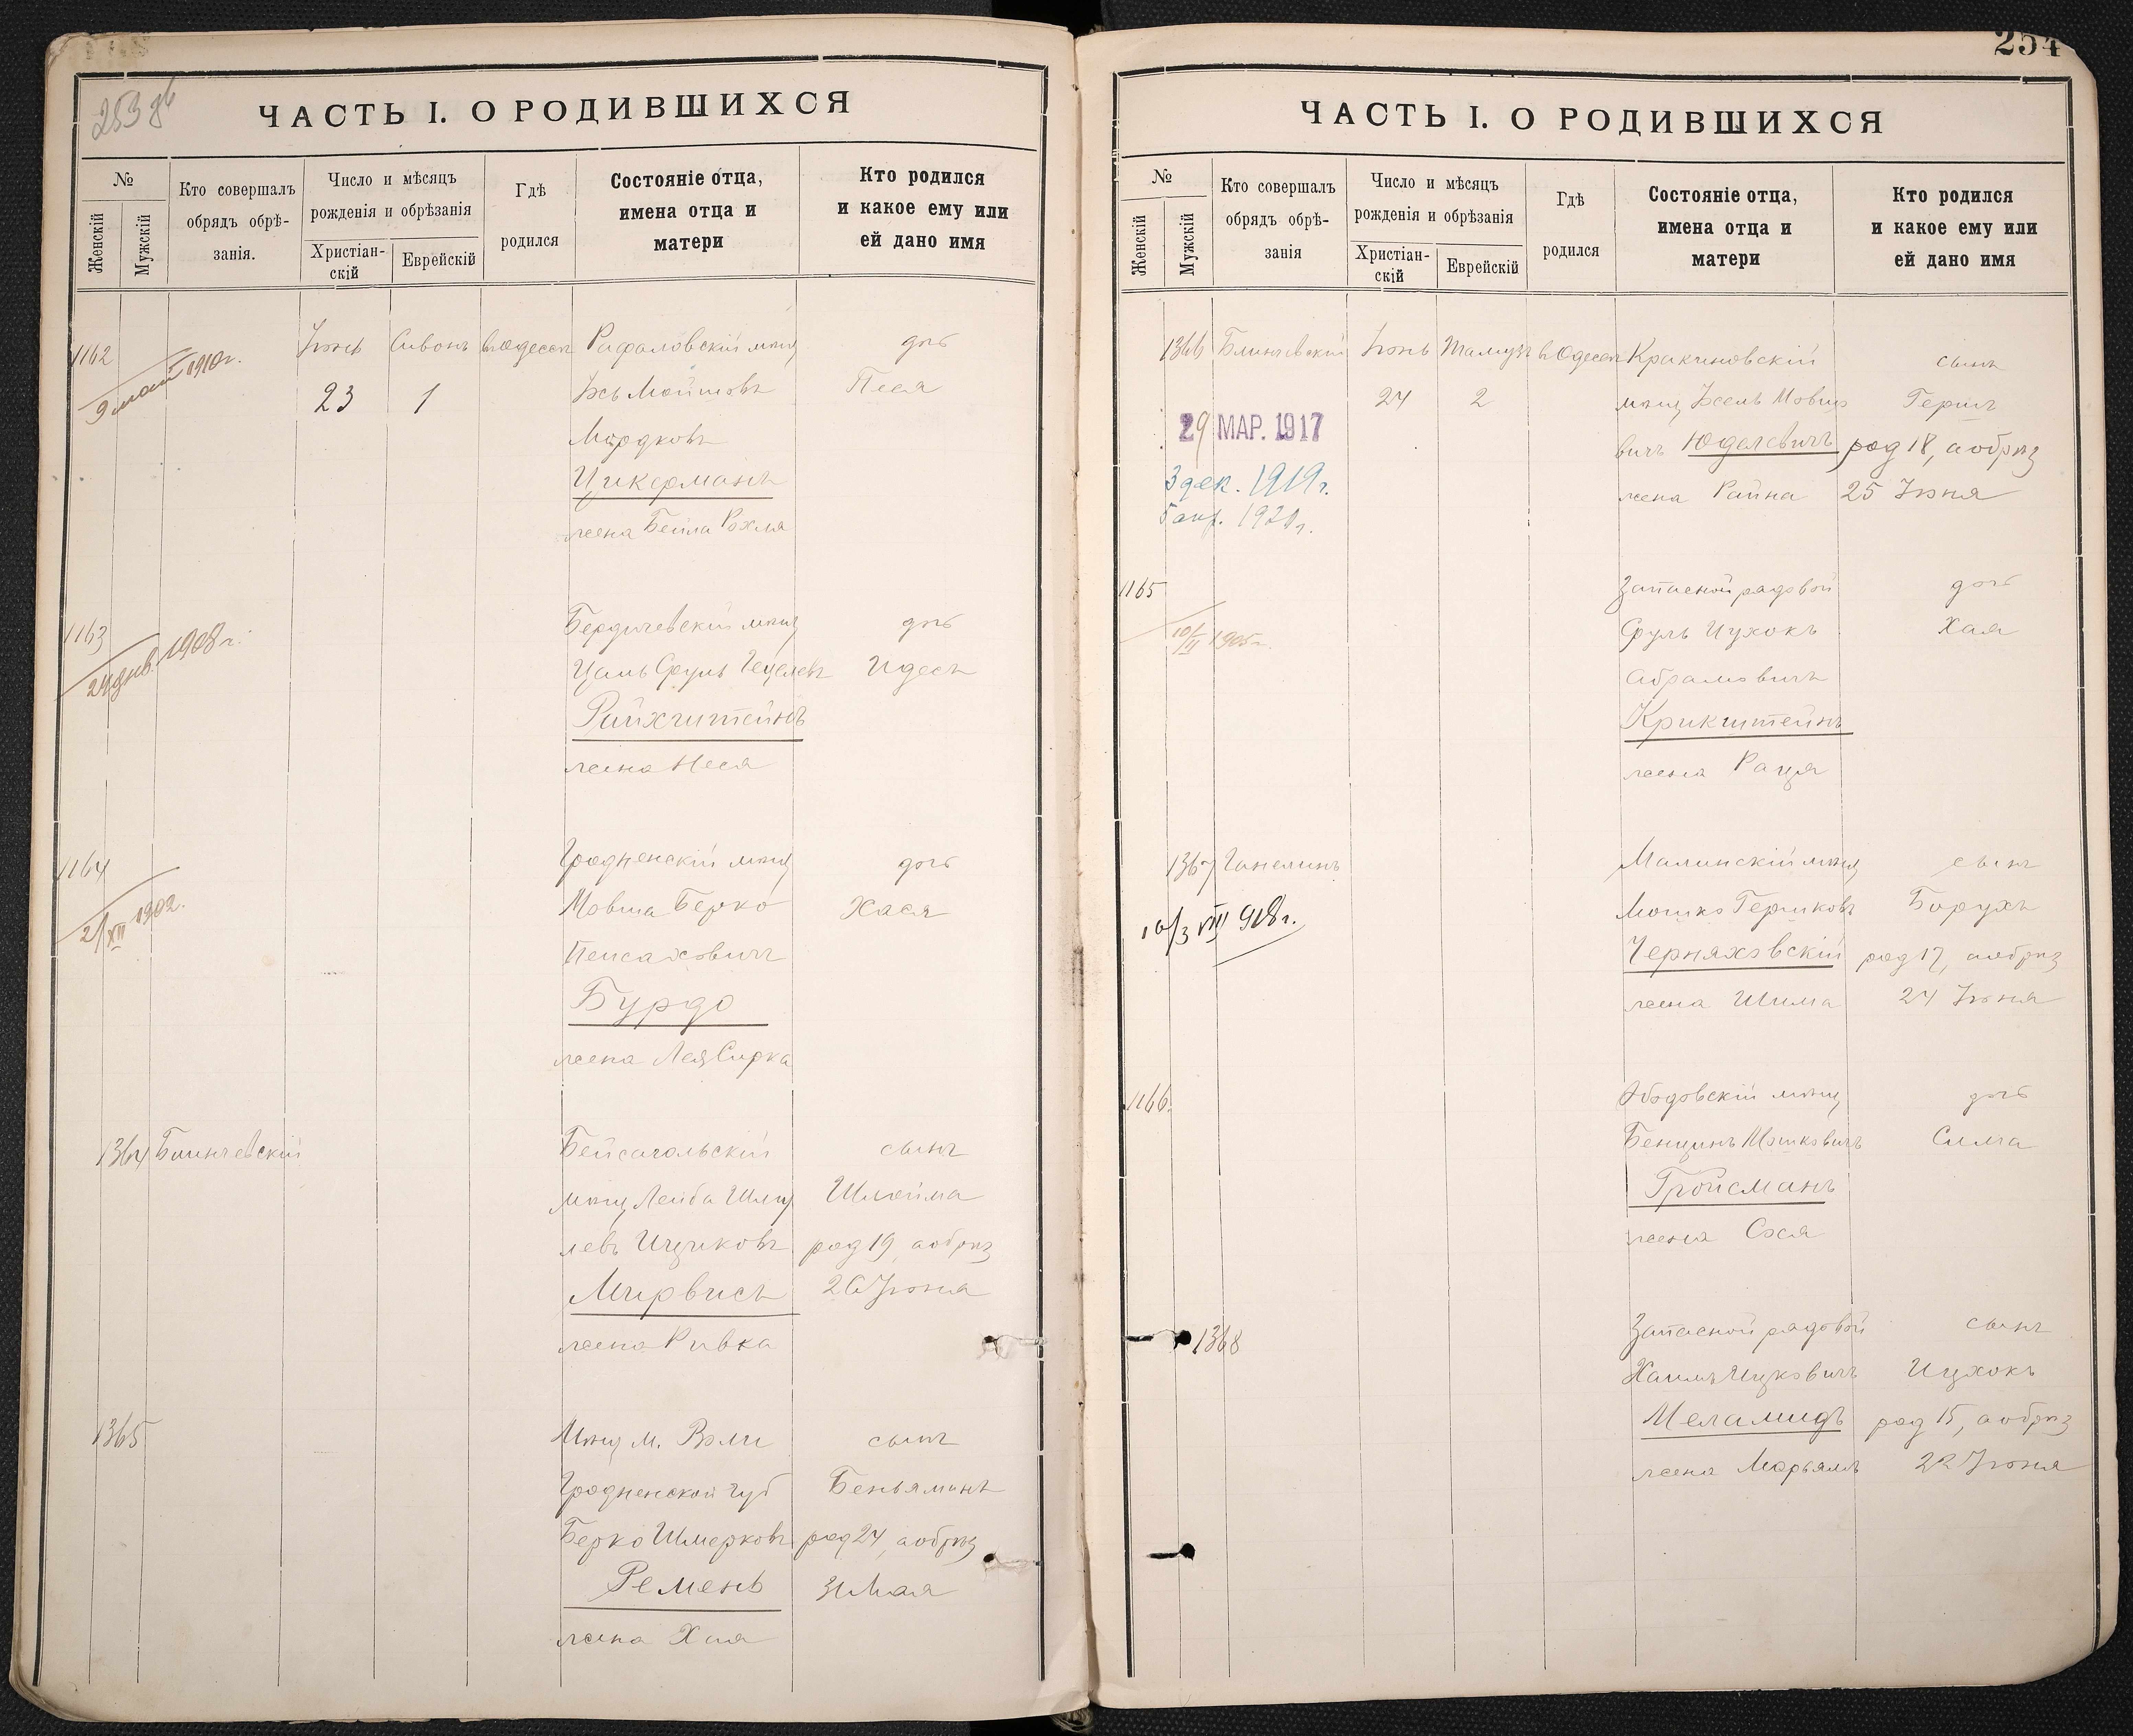 253 об
ЧАСТЬ I. О РОДИВШИХСЯ
№
Женскій
Мужскій
Кто совершалъ
обрядъ обрѣ-
занія.
Число и мѣсяцъ
рожденія и обрѣзанія
Христіан-
скій
Еврейскій
Гдѣ
родился
Состояніе отца,
имена отца и
матери
Кто родился
и какое ему или
ей дано имя
1162 Іюнь Сивонъ въ Одессѣ Рафаловскій мѣщ дочь
9 мая 1910г. 23 1 Мойшовъ Песя
Мордковъ
Цикерманъ
жена Бейла Рохля
1163 Бердичевскій мѣщ дочь
1908 г. Цаль Сруль Гецелевъ Идесъ
Райхштейнъ
жена Неся
1164 Гродненскій мѣщ дочь
2/XII 1902. Мовша Берко Хася
Пейсаховичъ
Бурдо
жена Лея Сирка
1364 Блинчевскій Бейсагольскій сынъ
мѣщ Лейба Шму Шлойма
левъ Ицковъ род 19, а обрѣз
Мирвисъ 26 Іюня
жена Ривка
1365 Мѣщ м. Волп сынъ
Гродненской губ Беньяминъ
Берко Шмерковъ род 24, а обрѣз
Ремень 31 Мая
жена Хая
254
ЧАСТЬ I. О РОДИВШИХСЯ
№
Женскій
Мужскій
Кто совершалъ
обрядъ обрѣ-
занія
Число и мѣсяцъ
рожденія и обрѣзанія
Христіан-
скій
Еврейскій
Гдѣ
родился
Состояніе отца,
имена отца и
матери
Кто родился
и какое ему или
ей дано имя
1366 Блинчевскій Іюнь Тамузъ въ Одессѣ Кракиновскій сынъ
24 2 мѣщ Іосель Мовшо Гершъ
29 МАР. 1917 вичъ Юделевичъ род 18, а обрѣз
3 дек. 1919г. жена Райна 25 Іюня
5 апр. 1921г.
1165 Запасной рядовой дочь
10/II 1905г. Сруль Ицхокъ Хая
Абрамовичъ
Крикштейнъ
жена Раця
1367 Ганелинъ Малинскій мѣщ сынъ
VIII 918г. Мошко Гершковъ Борухъ
Черняховскій род 17, а обрѣз
жена Шима 24 Іюня
1166. Ободовскій мѣщ дочь
Бенцинъ Мошковичъ Сима
Гройсманъ
жена Сося
1368 Запасной рядовой сынъ
Хаимъ Ицковичъ Ицхокъ
Меламидъ род 15, а обрѣз
жена Марьямъ 22 Іюня